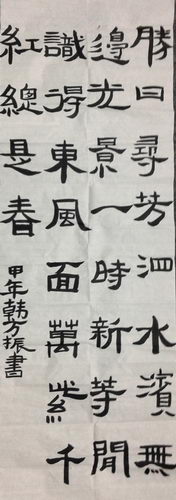 勝日尋芳泗水濱無
邊光景一時新等閒
識得東風面萬紫千
紅總是春
甲年韩方振書